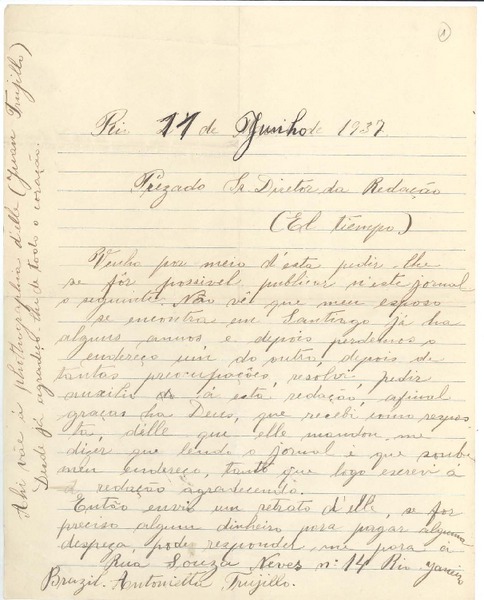 1
Rio 11 de Junho de 1937
Prezado Sr Diretor da Redação
(El Tiempo)
Venho por meio d'esta pedir-lhe
se fôr possivel publicar n'este jornal
o seguinte. Não vê que meu esposo
se encontra em Santiago já ha
alguns annos, e depois perdemos o
endereço um do outro, depois de
tantas preocupações, resolvi pedir
auxilio a esta redação, afinal
graças ha Deus, que recebi como respos
ta, d'elle que elle mandou me
dizer que lendo o jornal e que soube
meu endereço, tanto que logo escrevi á
redação agradecendo.
Então envio um retrato d'elle, se for
preciso algum dinheiro para pagar alguma
despeza, pode responder-me para á
Rua Souza Neves nº 14 Rio Janeiro
Brazil. Antonietta Trujillo.
Ahi vãe á photographia d'elle (Juan Trujillo)
Desde já agradeço-lhe de todo o coração.